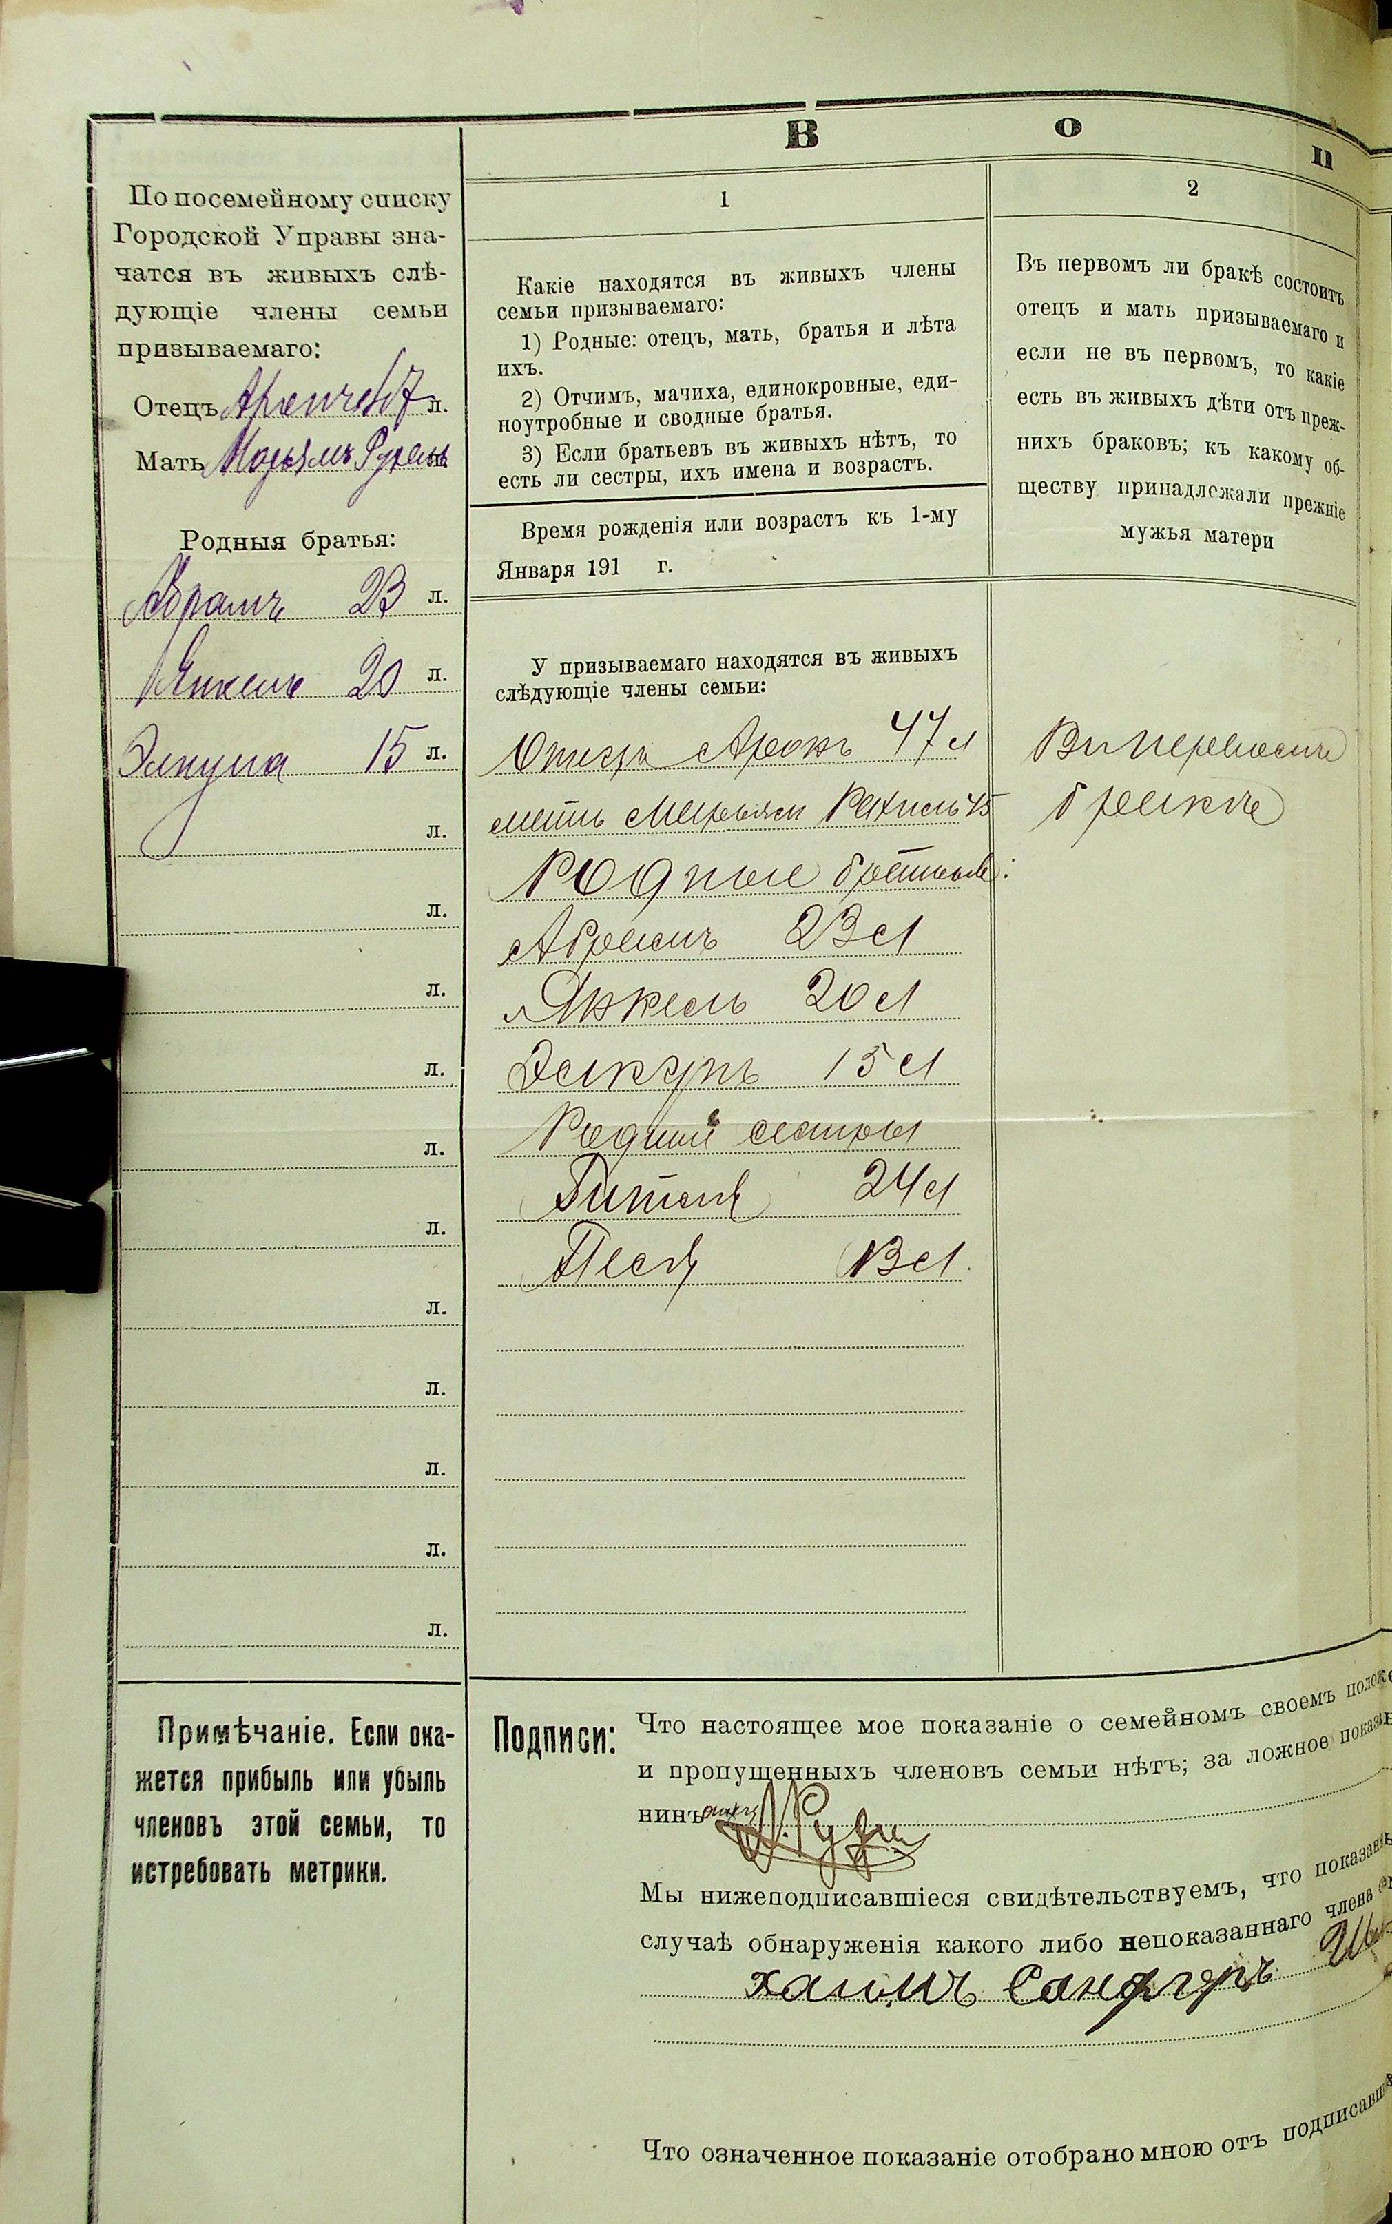 В о п
По посемейному списку
Городской Управы зна-
чатся въ живыхъ слѣ-
дующіе члены семьи
призываемаго:
Отецъ л.
Мать Марьямъ
Родныя братья:
Абрамъ 23 л.
Янкель 20 л.
Элкуна 15 л.
л.
л.
л.
л.
л.
л.
л.
л.
л.
л.
л.
Примѣчаніе. Если ока-
жется прибыль или убыль
членовъ этой семьи, то
истребовать метрики.
1
Какіе находятся въ живыхъ члены
семьи призываемаго:
1) Родные: отецъ, мать, братья и лѣта
ихъ.
2) Отчимъ, мачиха, единокровные, еди-
ноутробные и сводные братья.
3) Если братьевъ въ живыхъ нѣтъ, то
есть ли сестры, ихъ имена и возрастъ.
Время рожденія или возрастъ къ 1-му
Января 191 г.
У призываемаго находятся въ живыхъ
слѣдующіе члены семьи:
Отецъ Аронъ 47 л
мать Марьям Рахиль 45
Родные братья:
Абрамъ 23 л
Янкель 20 л
Элкунъ 15 л
Родные сестры
Гитля 24 л
Песя 13 л.
2
Въ первомъ ли бракѣ состоитъ
отецъ и мать призываемаго и
если не въ первомъ, то какіе
есть въ живыхъ дѣти отъ преж-
нихъ браковъ; къ какому об-
ществу принадлежали прежніе
мужья матери
Въ первомъ
бракѣ
Подписи: Что настоящее мое показаніе о семейномъ своемъ
и пропущенныхъ членовъ семьи нѣтъ; за ложное
нинъ отецъ А.
Мы нижеподписавшіеся свидѣтельствуемъ, что
случаѣ обнаруженія какого либо непоказаннаго члена
Хаимъ
Что означенное показаніе отобрано мною отъ